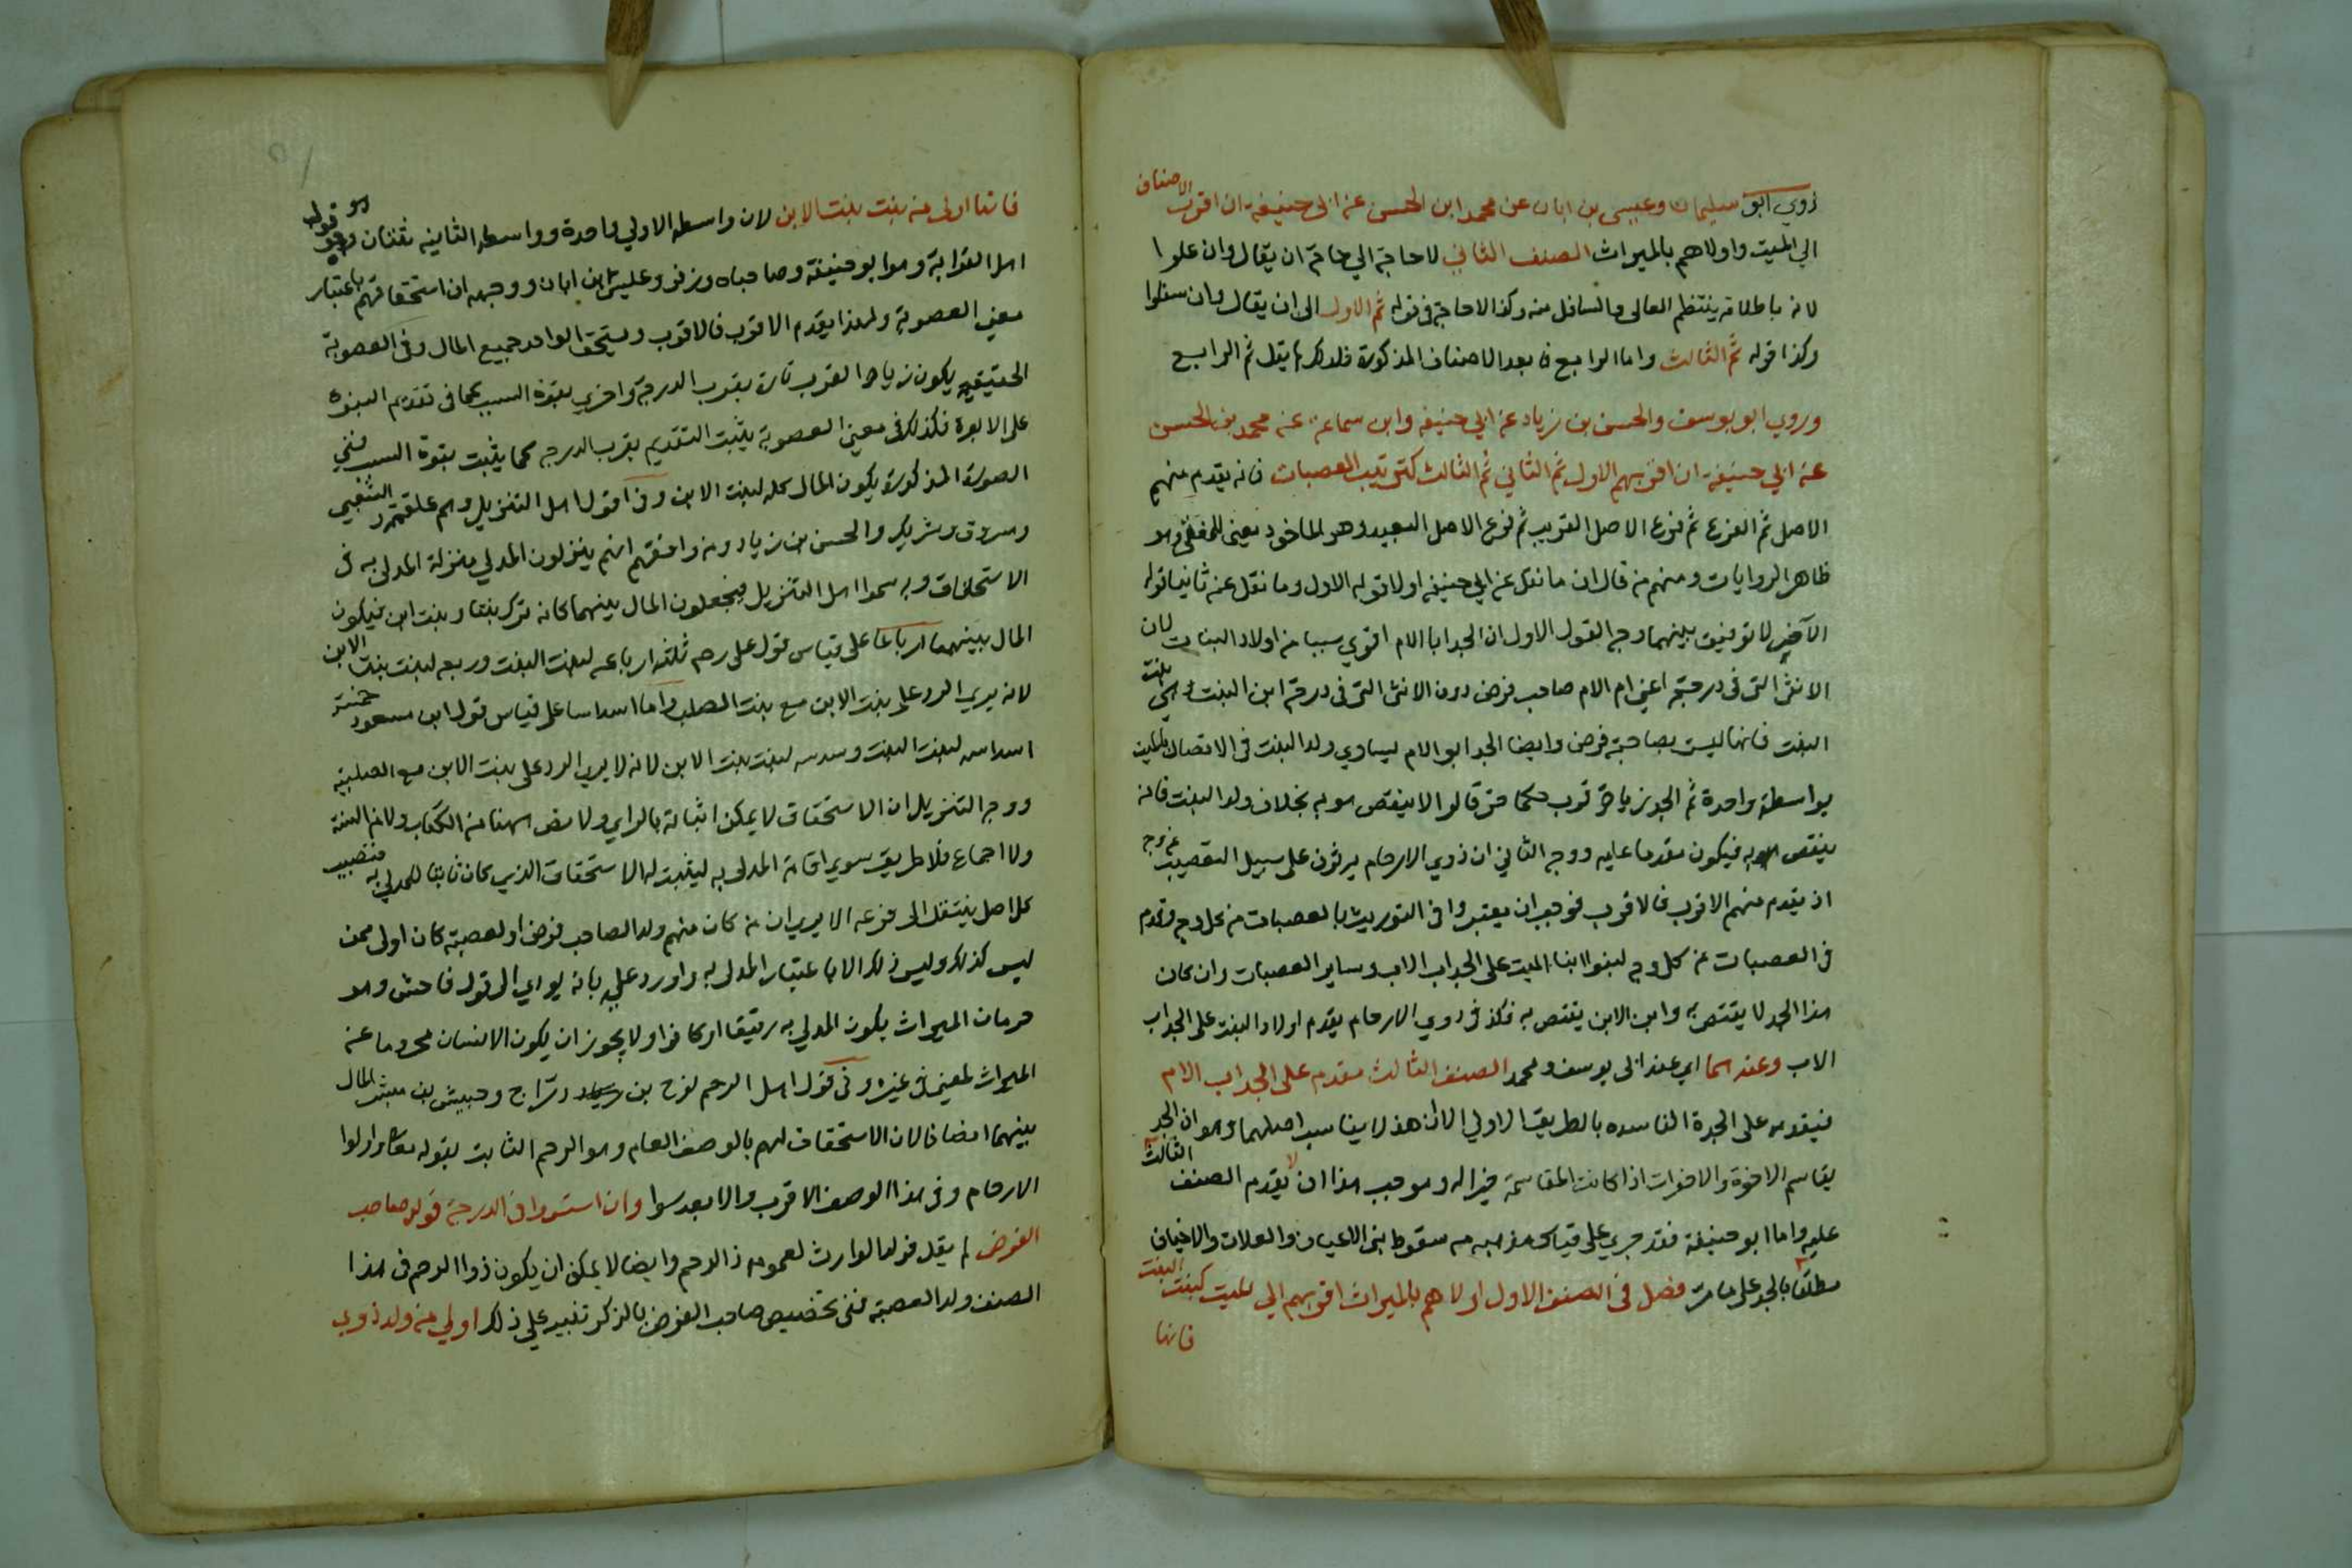 روي ابو سليمان وعيسى بن ابان عن محمد ابن الحسن عن ابي حنيفة ان اقرب الاصناف
الي الميت واولاهم بالميراث الصنف الثاني لا حاجة الي خاتمة ان يقال وان علوا
لانه باطلاقه ينتظم العالى والسافل منه وكذا لا حاجة في قوله ثم الاول الى ان يقال وان سفلوا
وكذا قوله ثم الثالث واما الرابع فابعد الاصناف المذكورة فلذلك لم يقل ثم الرابع
وروي ابو يوسف والحسن بن زياد عن ابي حنيفة وابن سماعة عن محمد بن الحسن
عن ابي حنيفة ان اقربهم الاول ثم الثاني ثم الثالث كترتيب العصبات فانه يقدم منهم
الاصل ثم الفرع ثم فرع الاصل القريب ثم فرع الاصل البعيد وهو الماخوذ يعني للفتوى وهو
ظاهر الروايات ومنهم من قال ان ما نقل عن ابي حنيفة اولا قوله الاول وما نقل عنه ثانيا قوله
الآخر لا توفيق بينهما وجه القول الاول ان الجد ابا الام اقوي سببا من اولاد البنات لان
الانثى التي في درجته اعني ام الام صاحب فرض دون الانثى التي في درجة ابن البنت وهي بنت
البنت فانها ليست بصاحبة فرض وايضا الجد ابو الام يساوي ولد البنت في الاتصال بالميت
بواسطة واحدة ثم الجد زيادة قرب حكما حتى قالوا لا ينقص هو به بخلاف ولد البنت فانه
ينقص به فيكون مقدما عليه ووجه الثاني ان ذوي الارحام يرثون على سبيل التعصيب من وجه
اذ يقدم منهم الاقرب فالاقرب فوجب ان يعتبروا في التوريث بالعصبات من كل وجه وقدم
في العصبات من كل وجه لبنوا ابنا الميت على الجد اب الاب وساير العصبات وان كان
هذا الجد لا يقتص به وابن الابن يقتص به فكذ في ذوي الارحام يقدم اولاد البنت على الجد اب
الاب وعندهما اي عند ابي يوسف ومحمد الصنف الثالث مقدم على الجد اب الام
فيقدم على الجدة الفاسده بالطريق الاولي الا ان هذا لا يناسب اصلهما وهو ان الجد
يقاسم الاخوة والاخوات اذا كانت المقاسمة خير اله وموجب هذا ان لا يقدم الصنف الثالث
عليه واما ابو حنيفة فقد جري على قياس مذهبه من سقوط بني الاعيان والعلات والاخياف
مطلقا بالجد على ما مر فصل في الصنف الاول اولاهم بالميراث اقربهم الي الميت كبنت البنت
فانها
فانها اولى من بنت بنت الابن لان واسطة الاولي واحدة وواسطة الثانيه ثنتان وهو قول
اهل القرابة وهو ابو حنيفة وصاحباه وزفر وعيسى ابن ابان ووجهه ان استحقاقهم باعتبار
معني العصوبة ولهذا يقدم الاقرب فالاقرب ويستحق الواحد جميع المال وفي العصوبة
الحقيقيه يكون زيادة القرب تارة بقرب الدرجة واخري بقوة السبب كما في تقديم البنوة
على الابوة فكذلك في معني العصوبة يثبت التقديم بقرب الدرجه كما يثبت بقوة السبب ففي
الصورة المذكورة يكون المال كله لبنت البنت وفي قول اهل التنزيل وهم علقمة والشعبي
ومسروق وشريك والحسن بن زياد ومن وافقهم انهم ينزلون المدلي منزلة المدلى به في
الاستحقاق وبه سموا اهل التنزيل فيجعلون المال بينهما كانه ترك بنتا وبنت ابن فيكون
المال بينهما ارباعا على قياس قول على رضي ثلثة ارباعه لبنت البنت وربعه لبنت بنت الابن
لانه يري الرد على بنت الابن مع بنت الصلب واما اسداسا على قياس قول ابن مسعود خمسة
اسداسه لبنت البنت وسدسه لبنت بنت الابن لانه لا يري الرد على بنت الابن مع الصلبيه
ووجه التنزيل ان الاستحقاق لا يمكن اثباته بالراي ولا نص ههنا من الكتاب ولا من السنة
ولا اجماع فلا طريق سوي اقامة المدلى به ليثبت له الاستحقاق الذي كان ثابتا للمدلي به فنصيب
كل اصل ينتقل الى فرعه الا يري ان من كان منهم ولد الصاحب فرض او لعصبة كان اولى ممن
ليس كذلك وليس ذلك الا باعتبار المدلى به واورد عليه بانه يودي الى قول فاحش وهو
حرمان الميراث بكون المدلي به رقيقا او كافرا ولا يجوز ان يكون الانسان محروما عن
الميراث لمعني في غيره وفي قول اهل الرحم نوح بن دراج وحبيش بن مبشر المال
بينهما انصافا لان الاستحقاق لهم بالوصف العام وهو الرحم الثابت بقوله تعالى واولوا
الارحام وفي هذا الوصف الاقرب والابعد سوا وان استووا في الدرجة فولد صاحب
الفرض لم يقل فولد الوارث لعمومه ذا الرحم وايضا لا يمكن ان يكون ذوا الرحم في هذا
الصنف ولد العصبة ففي تخصيص صاحب الفرض بالذكر تنبيه على ذلك اولي من ولد ذوي